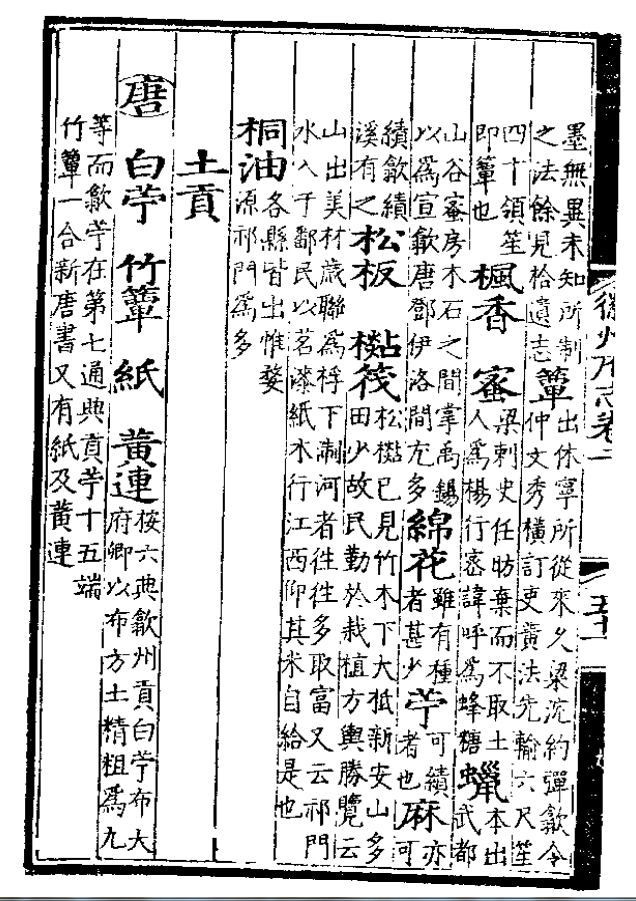 墨無異未知所制之法餘見拾遺志簟出休寧所從來久梁沈約彈歙令仲文秀橫訂吏黃法先輸六尺笙
四十領笙即簟也楓香 蜜梁刺史任昉棄而不取土人為楊行密諱呼為蜂糖蠟本出武都
山谷蜜房木石之間掌禹錫以為宣歙唐鄧伊洛間尤多綿花雖有種者甚少苧可績者也麻亦可
績歙績溪有之松板 筏松已見竹木下大抵新安山多田少故民勤於栽植方輿勝覽云
山出美材歳聯為桴下淛河者往往多取富又云祁門水入于鄱民以茗漆紙木行江西仰其米自給是也
桐油各縣皆出惟婺源祁門為多
土貢
唐 白苧 竹簟 紙 黃連按六典歙州貢白苧布大府卿以布方土精粗為九
等而歙苧在第七通典貢苧十五端竹簟一合新唐書又有紙及黃連
徽州府志卷二
五十一